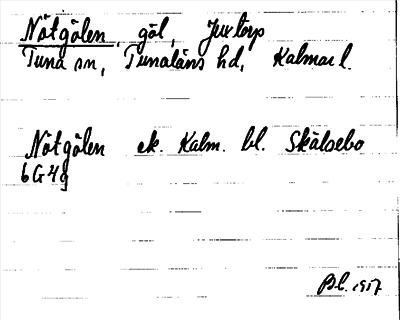 Nötgölen, göl, Juxtorp
Tuna sn, Tunaläns hd, Kalmar l.
Nötgölen ek. Kalm. bl. Skälsebo
6G4g
Bl. 1917